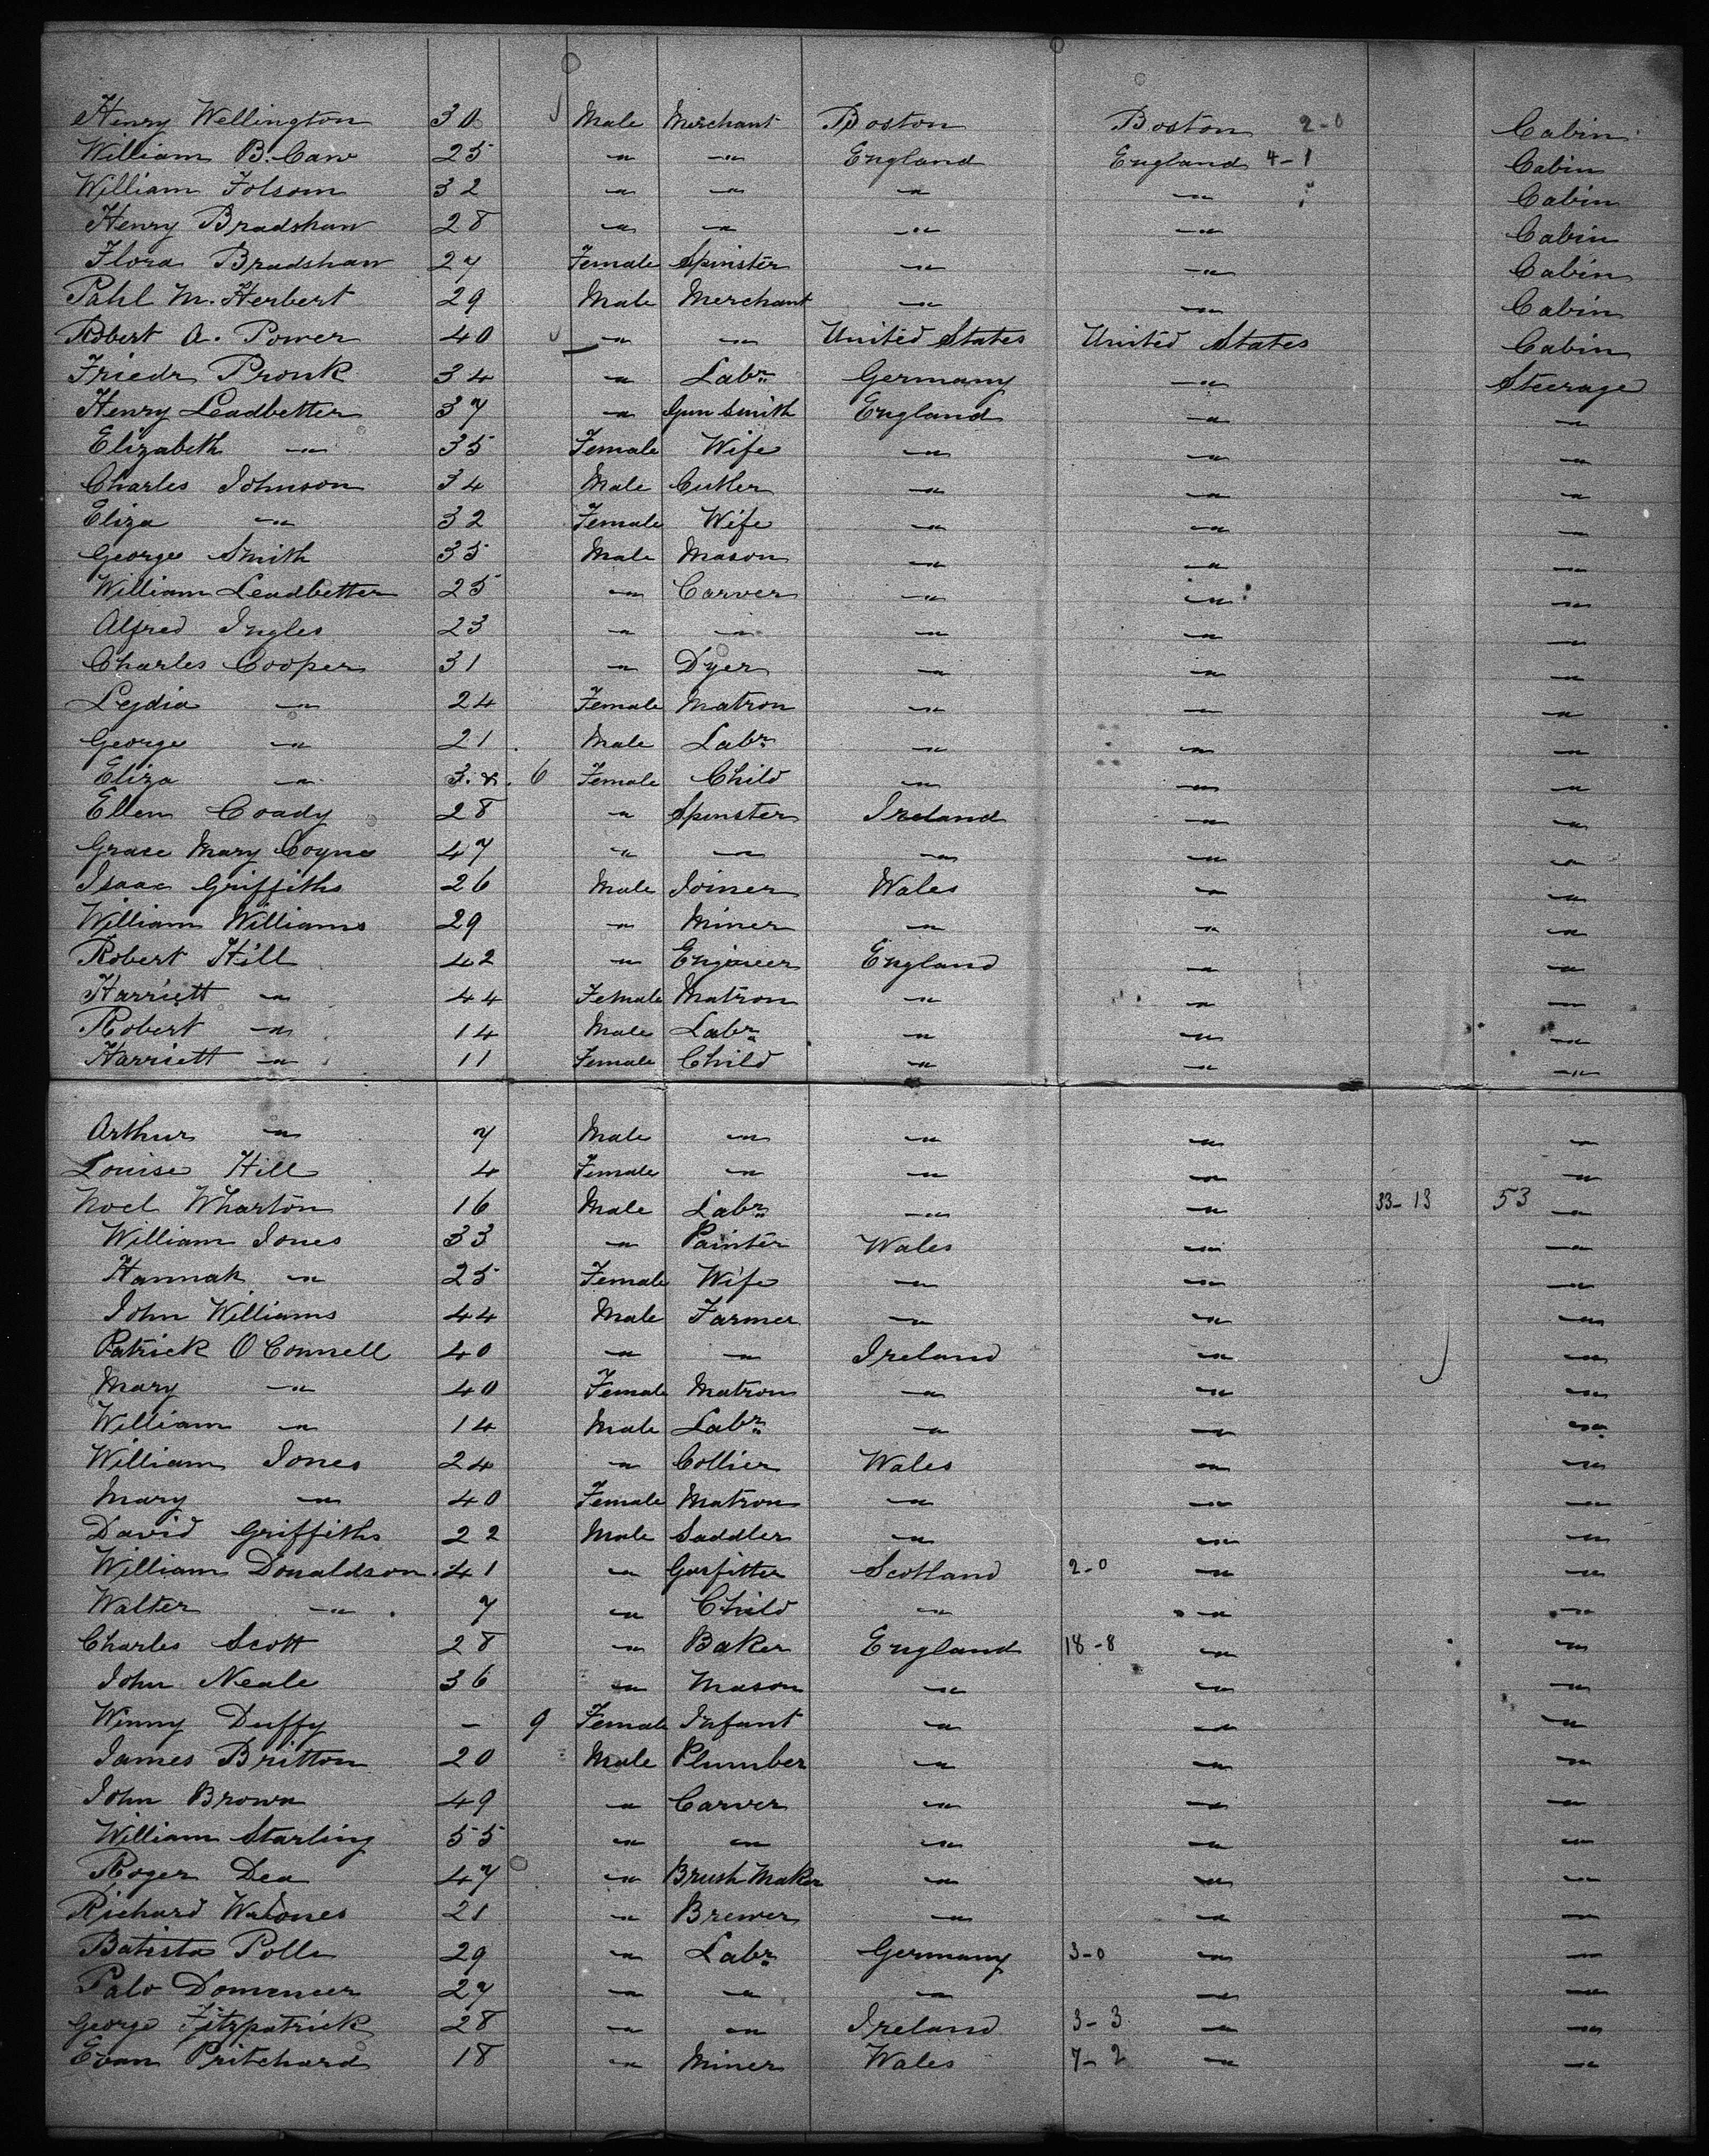 Henry Wellington 30 Male Merchant Boston Boston 2-0 Cabin
William B. Caw 25 " " England England 4-1 Cabin
William Folsom 32 " " " " Cabin
Henry Bradshaw 28 " " " " Cabin
Flora Bradshaw 27 Female Spinster " " Cabin
Pahl M. Herbert 29 Male Merchant " " Cabin
Robert A. Power 40 " " United States United States Cabin
Friedr Pronk 34 " Labr Germany " Steerage
Henry Leadbetter 37 " Gun Smith England " "
Elizabeth " 35 Female Wife " " "
Charles Johnson 34 Male Cutler " " "
Eliza " 32 Female Wife " " "
George Smith 35 Male Mason " " "
William Leadbetter 25 " Carver " " "
Alfred Ingles 23 " " " " "
Charles Cooper 31 " Dyer " " "
Lydia " 24 Female Matron " " "
George " 21 Male Labr " " "
Eliza " 3. 6 Female Child " " "
Ellen Coady 28 " Spinster Ireland " "
Grace Mary Coyne 47 " " " " "
Isaac Griffiths 26 Male Joiner Wales " "
William Williams 29 " Miner " " "
Robert Hill 42 " Engineer England " "
Harriett " 44 Female Matron " " "
Robert " 14 Male Labr " " "
Harriett " 11 Female Child " " "
Arthur " 7 Male " " " "
Louise Hill 4 Female " " " "
Noel Wharton 16 Male Labr " " 33-13 53 "
William Jones 33 " Painter Wales " "
Hannah " 25 Female Wife " " "
John Williams 44 Male Farmer " " "
Patrick O'Connell 40 " " Ireland " "
Mary " 40 Female Matron " " "
William " 14 Male Labr " " "
William Jones 24 " Collier Wales " "
Mary " 40 Female Matron " " "
David Griffiths 22 Male Saddler " " "
William Donaldson 41 " Gasfitter Scotland 2-0 " "
Walter " 7 " Child " " "
Charles Scott 28 " Baker England 18-8 " "
John Neale 36 " Mason " " "
Winny Duffy - 9 Female Infant " " "
James Britton 20 Male Plumber " " "
John Brown 49 " Carver " " "
William Starling 55 " " " " "
Roger Dea 47 " Brush Maker " " "
Richard 21 " Brewer " " "
Batista Polle 29 " Labr Germany 3-0 " "
Palo 27 " " " " "
George Fitzpatrick 28 " " Ireland 3-3 " "
Evan Pritchard 18 " Miner Wales 7-2 " "